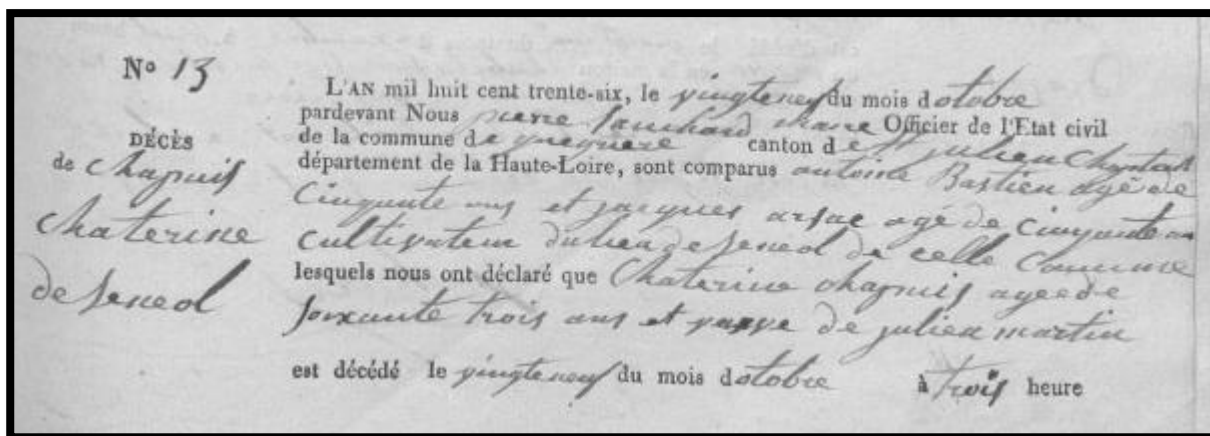 No 13
DÉCÈS
de chapuis
chaterine
de seneol
L'AN mil huit cent trente-six, le vingteneuf du mois dotobre
pardevant Nous pierre maire Officier de l'Etat civil
de la commune de queyriere canton de st julien Chapteuil
département de la Haute-Loire, sont comparus antoine Bastien agé de
Cinquante ans et jacques arsac agé de cinquante ans
cultivateur du lieu de seneol de celle Commune
lesquels nous ont déclaré que Chaterine chapuis agee de
soixante trois ans et veuve de julien martin
est décédé le vingteneuf du mois dotobre à trois heure